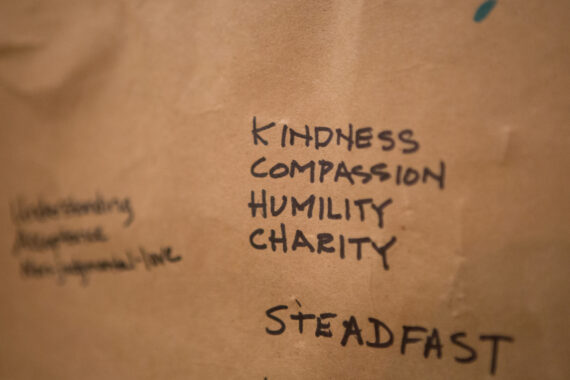 KINDNESS
COMPASSION
HUMILITY
CHARITY
Understanding
Acceptance
Non judgmental-love
STEADFAST